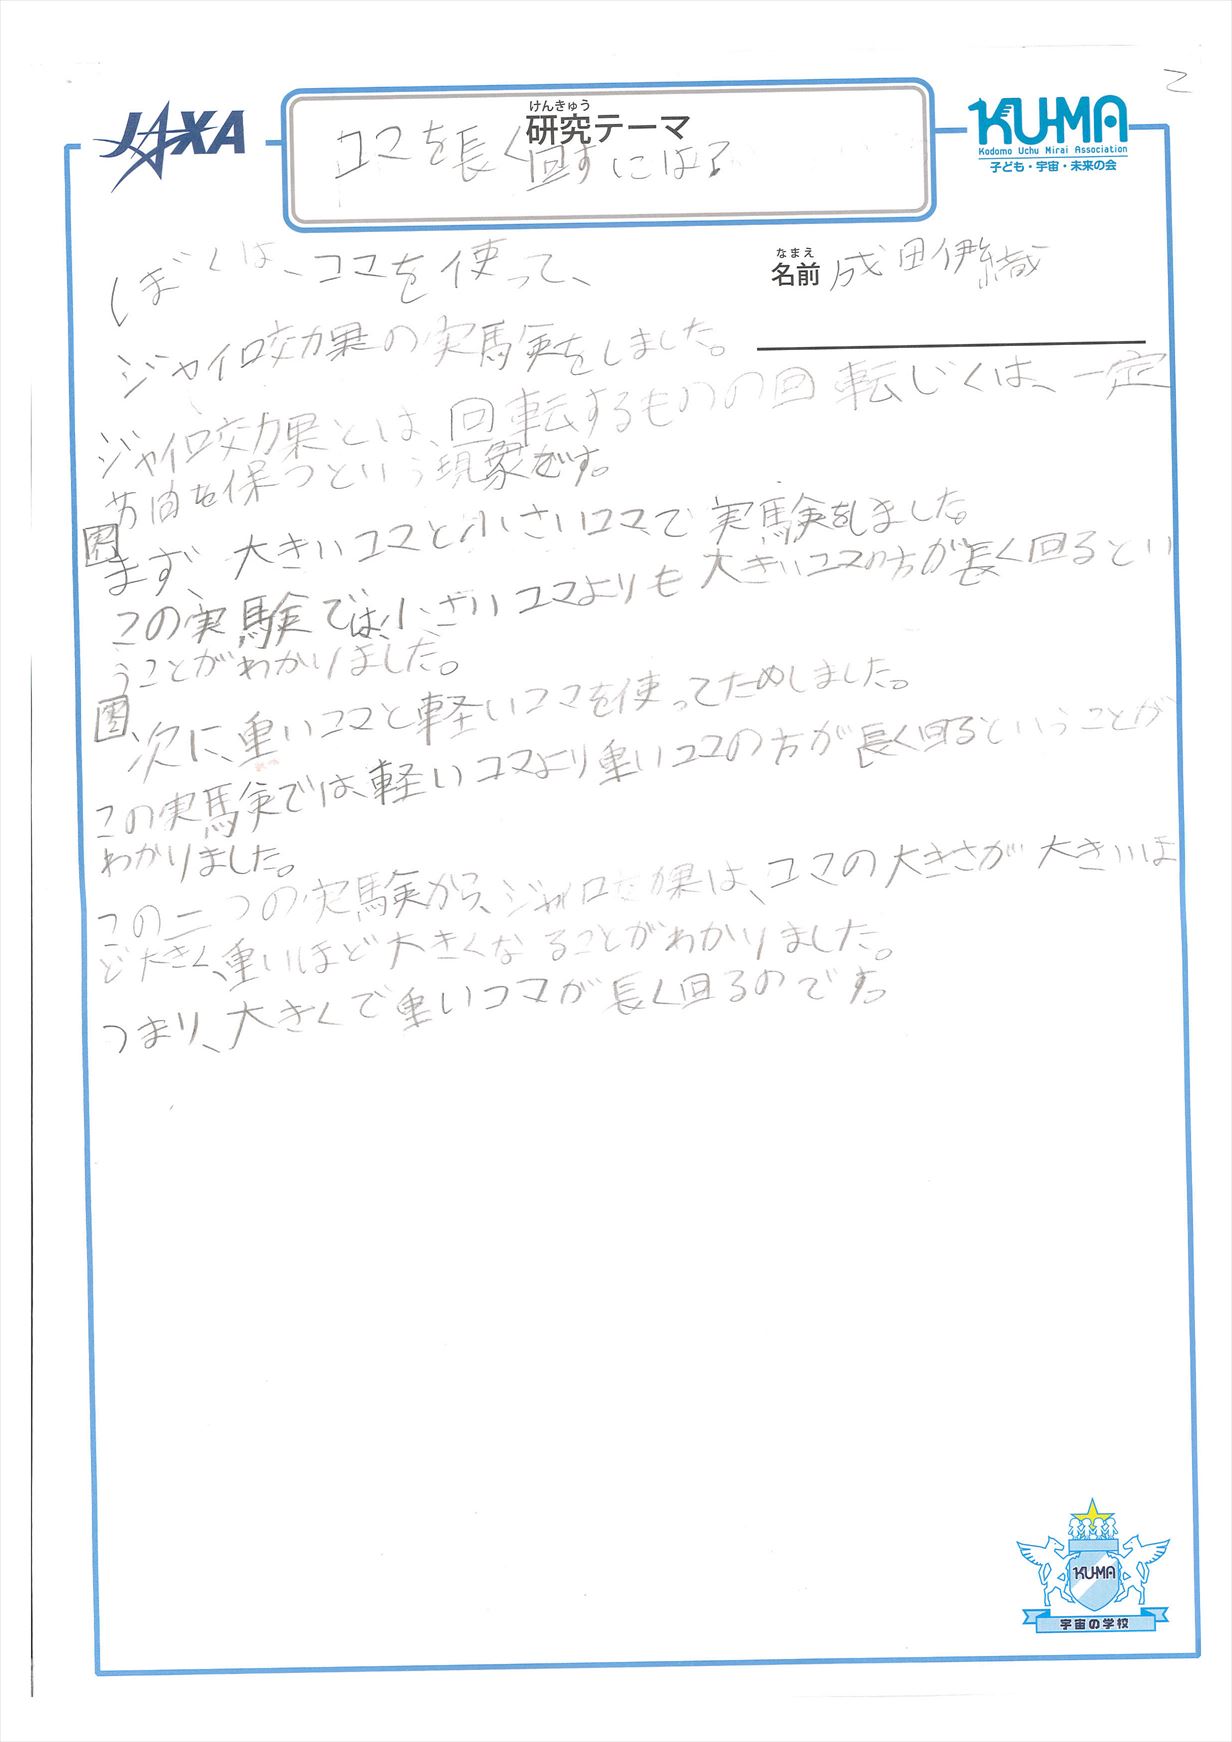 2
JAXA
けんきゅう
研究テーマ
コマを長く回すには?
KU-MA
Kodomo Uchu Mirai Association
子ども・宇宙・未来の会
なまえ
名前 成田伊織
ぼくは、コマを使って、
ジャイロ効果の実験をしました。
ジャイロ効果とは、回転するものの回転じくは、一定
方向を保つという現象です。
まず、大きいコマと小さいコマで実験をしました。
この実験では、小さいコマよりも大きいコマの方が長く回るとい
うことがわかりました。
次に、重いコマと軽いコマを使ってためしました。
この実験では、軽いコマより重いコマの方が長く回るということが
わかりました。
この二つの実験から、ジャイロ効果は、コマの大きさが大きいほ
ど大きく、重いほど大きくなることがわかりました。
つまり、大きくで重いコマが長く回るのです。
KU-MA
宇宙の学校